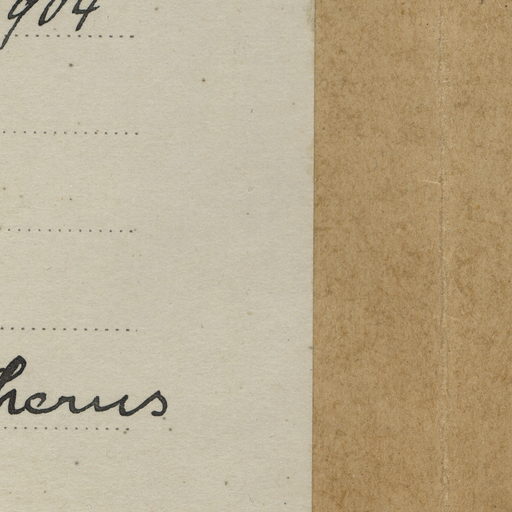 904
herus